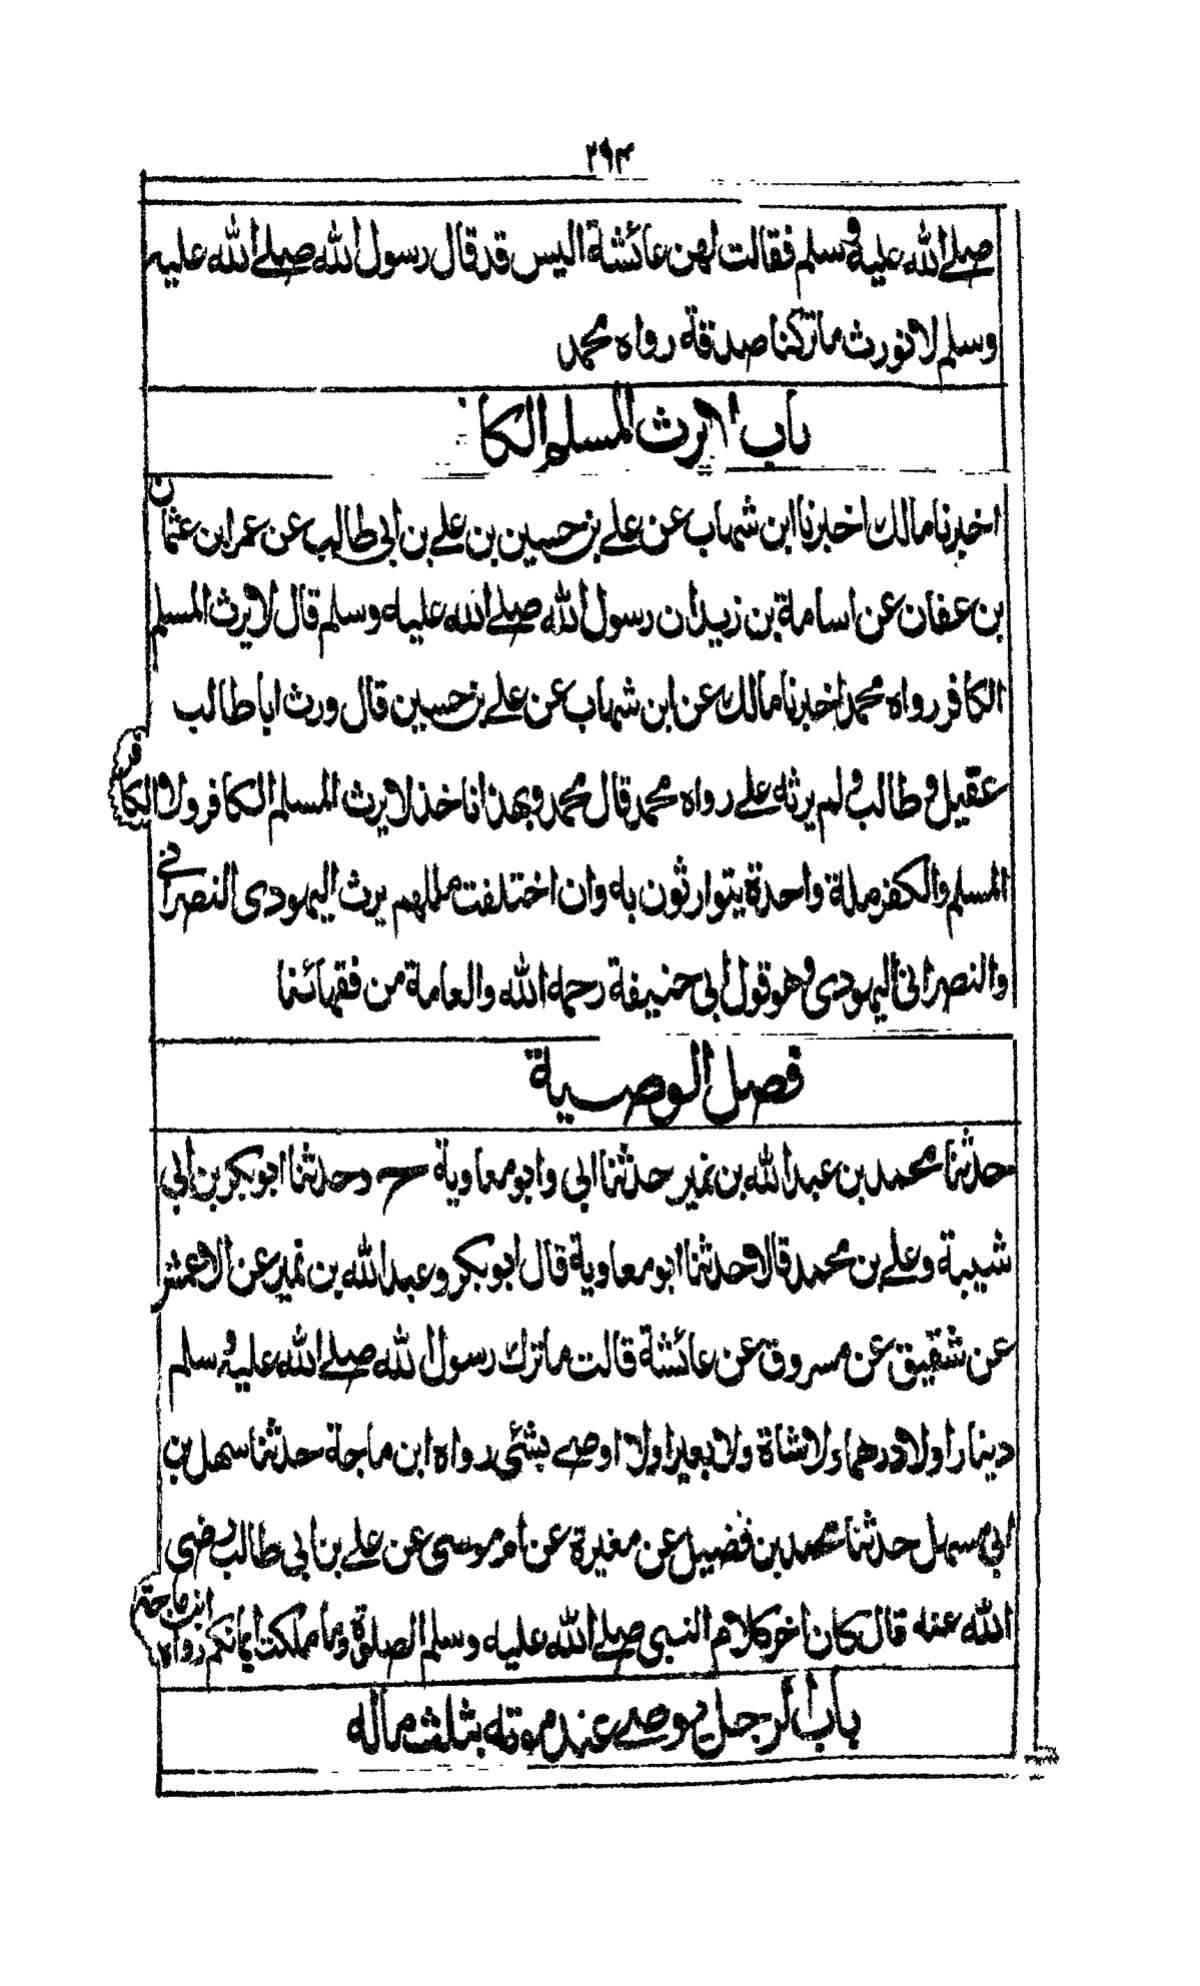 ٢٩٣
صلے الله عليه وسلم فقالت لهن عائشة اليس قد قال رسول الله صلے الله عليه
وسلم لا نورث ما تركنا صدقة رواه محمد
باب لا يرث المسلم الكا
اخبرنا مالك اخبرنا ابن شهاب عن علے بن حسين بن علے بن ابی طالب عن عمر ابن عثمان
بن عفان عن اسامة بن زيد ان رسول الله صلے الله عليه وسلم قال لا يرث المسلم
الكافر رواه محمد اخبرنا مالك عن ابن شهاب عن علے بن حسين قال ورث ابا طالب
عقيل وطالب ولم يرثه علے رواه محمد قال محمد وبهذا ناخذ لا يرث المسلم الكافر ولا الكافر
المسلم والكفر ملة واحدة يتوارثون به وان اختلفت مللهم يرث اليهودی النصرانی
والنصرانی اليهودی وهو قول ابی حنيفة رحمه الله والعامة من فقهائنا
فصل الوصية
حدثنا محمد بن عبد الله بن نمير حدثنا ابی وابو معاوية ح وحدثنا ابو بكر بن ابی
شيبة وعلے بن محمد قالا حدثنا ابو معاوية قال ابو بكر وعبد الله بن نمير عن الاعمش
عن شقيق عن مسروق عن عائشة قالت ما ترك رسول الله صلے الله عليه وسلم
دينارا ولا درهما ولا شاة ولا بعيرا ولا اوصے بشئی رواه ابن ماجة حدثنا سهل بن
ابی سهل حدثنا محمد بن فضيل عن مغيرة عن ام موسی عن علے بن ابی طالب رضی
الله عنه قال كان اخر كلام النبی صلے الله عليه وسلم الصلوة وما ملكت ايمانكم رواه ابن ماجة
باب الرجل يوصے عند موته بثلث ماله